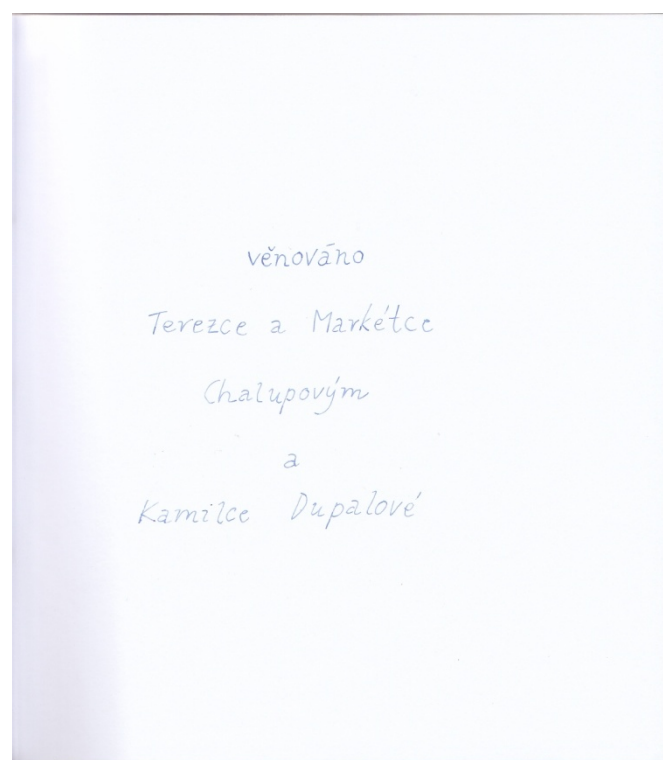 věnováno
Terezce a Markétce
Chalupovým
a
Kamilce Dupalové